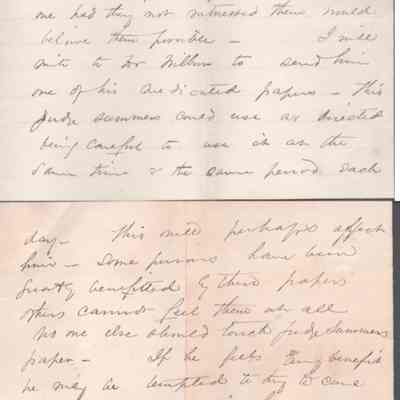 one had they not witnessed them would
believe them possible – I will
write to Dr Wilbur to send him
one of his medicated papers – This
Judge Summers could use as directed
being careful to use it at the
same time & the same period each
day – This will perhaps affect
him – Some persons have been
greatly benefitted by these papers
others cannot feel them at all
No one else should touch Judge Summers
paper – If he feels any benefit
he may be tempted to try to come